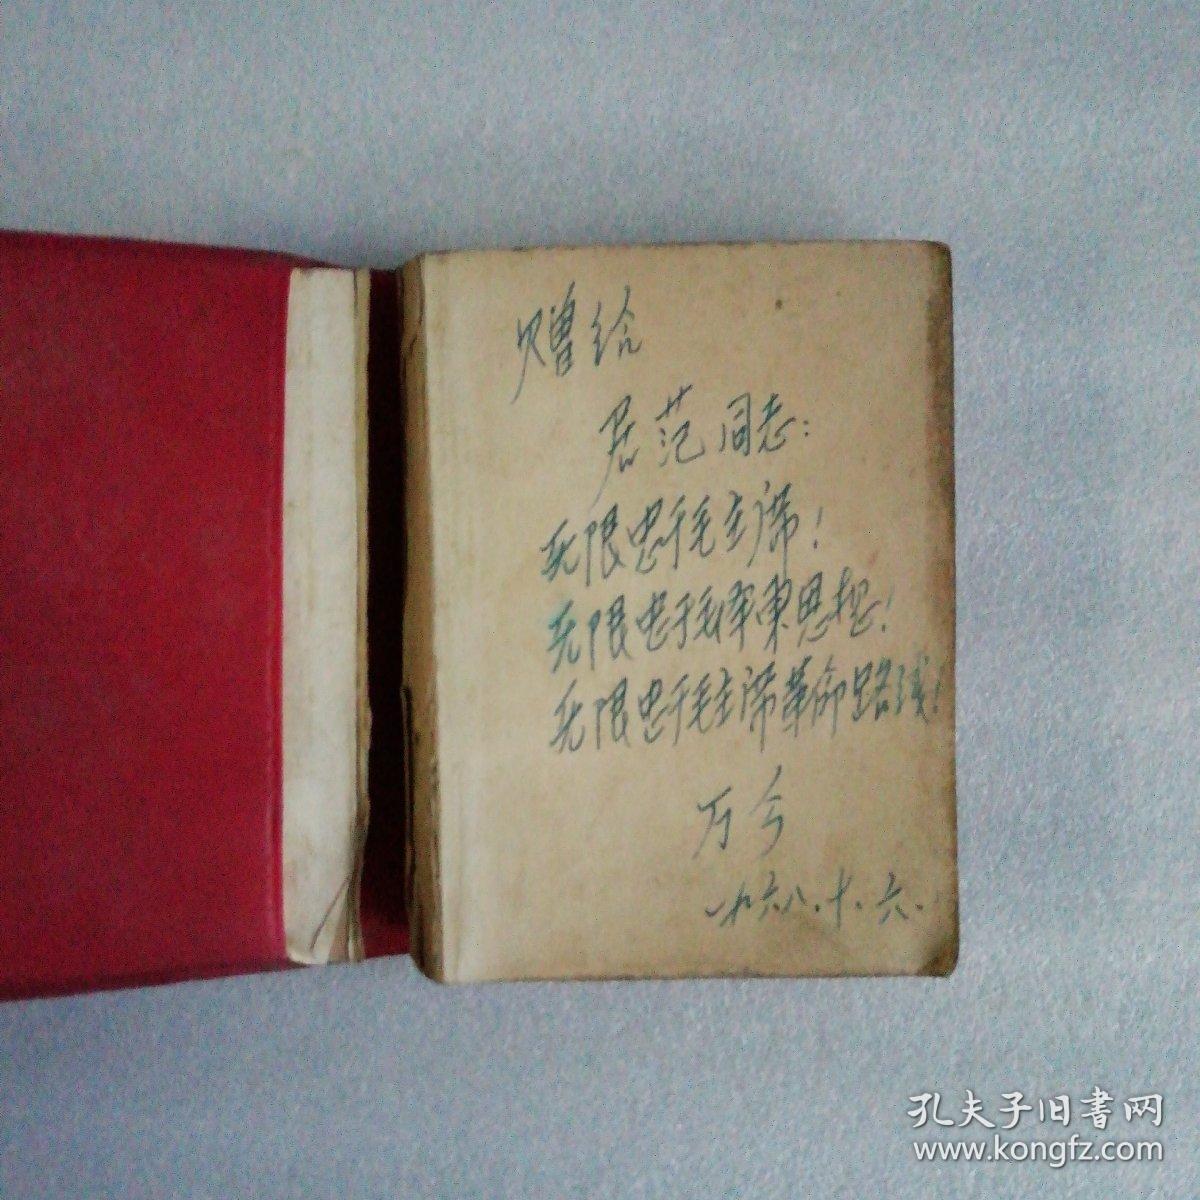 赠给
君范同志:
无限忠于毛主席!
无限忠于毛泽东思想!
无限忠于毛主席革命路线!
万今
一九六八.十.六.
孔夫子旧書网
www.kongfz.com